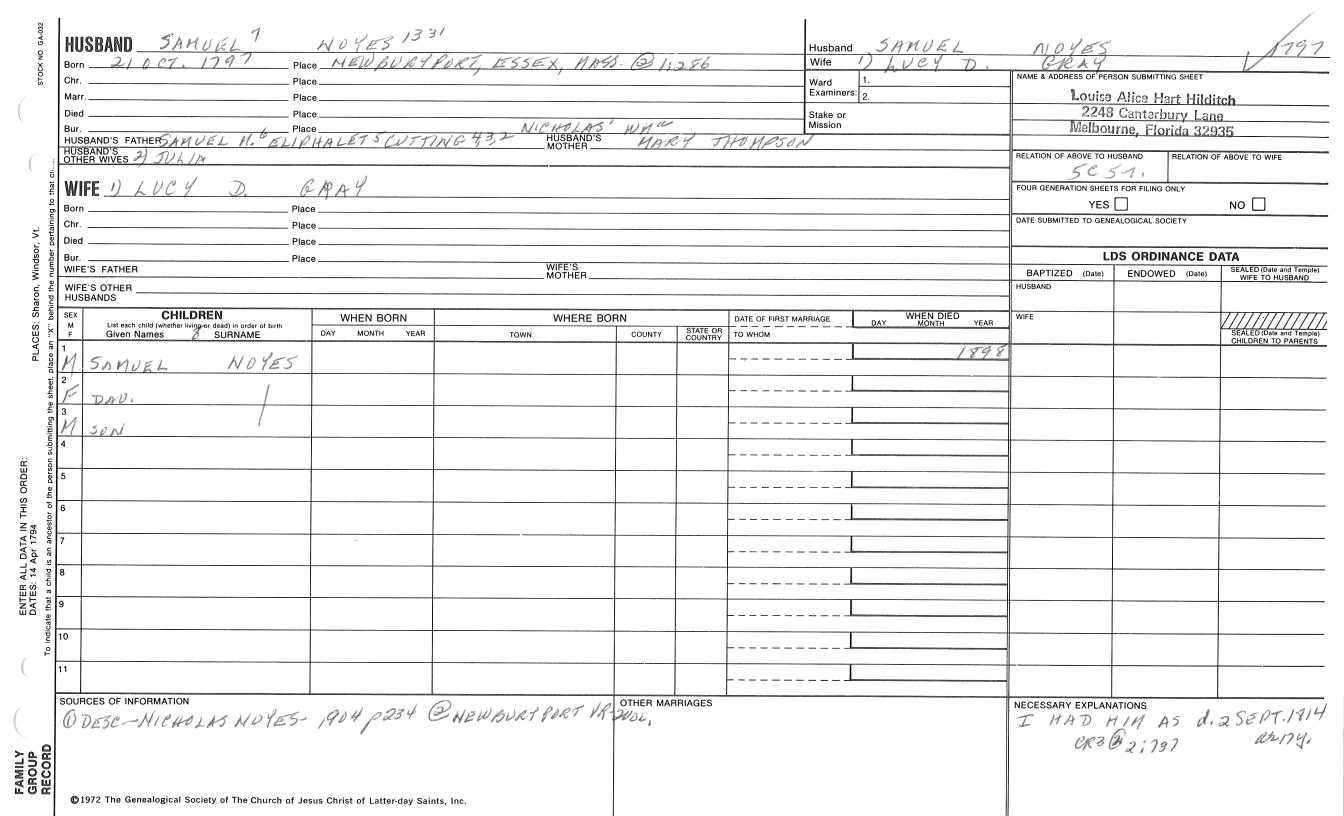 STOCK NO. GA-032
HUSBAND SAMUEL 7 NOYES 1331
Born 21 OCT. 1797 Place NEWBURYPORT, ESSEX, MASS. @ 1;286
Chr. Place
Marr. Place
Died Place
Bur. Place
NICHOLAS' WM
HUSBAND'S FATHER SAMUEL M. 6 ELIPHALET 5 CUTTING 4,3,2 HUSBAND'S MOTHER MARY THOMPSON
HUSBAND'S OTHER WIVES 2) JULIA
Husband SAMUEL NOYES 1797
Wife 1) LUCY D. GRAY
Ward Examiners: 1.
2.
Stake or Mission
NAME & ADDRESS OF PERSON SUBMITTING SHEET
Louise Alice Hart Hilditch
2248 Canterbury Lane
Melbourne, Florida 32935
RELATION OF ABOVE TO HUSBAND RELATION OF ABOVE TO WIFE
5C 5
FOUR GENERATION SHEETS FOR FILING ONLY
YES NO
DATE SUBMITTED TO GENEALOGICAL SOCIETY
WIFE 1) LUCY D. GRAY
Born Place
Chr. Place
Died Place
Bur. Place
WIFE'S FATHER WIFE'S MOTHER
WIFE'S OTHER HUSBANDS
LDS ORDINANCE DATA
BAPTIZED (Date) ENDOWED (Date) SEALED (Date and Temple) WIFE TO HUSBAND
HUSBAND
WIFE
SEALED (Date and Temple) CHILDREN TO PARENTS
SEX M F
CHILDREN
List each child (whether living or dead) in order of birth
Given Names 8 SURNAME
WHEN BORN
DAY MONTH YEAR
WHERE BORN
TOWN COUNTY STATE OR COUNTRY
DATE OF FIRST MARRIAGE
TO WHOM
WHEN DIED
DAY MONTH YEAR
1 M SAMUEL NOYES 1898
2 F DAU.
3 M SON
4
5
6
7
8
9
10
11
SOURCES OF INFORMATION
① DESC-NICHOLAS NOYES- 1904 p234 ② NEWBURYPORT VR-2VOL.
OTHER MARRIAGES
NECESSARY EXPLANATIONS
I HAD HIM AS d. 2 SEPT. 1814
CR3 ② 2;797
©1972 The Genealogical Society of The Church of Jesus Christ of Latter-day Saints, Inc.
PLACES: Sharon, Windsor, Vt.
ENTER ALL DATA IN THIS ORDER:
DATES: 14 Apr 1794
To indicate that a child is an ancestor of the person submitting the sheet, place an "X" behind the number pertaining to that
FAMILY
GROUP
RECORD